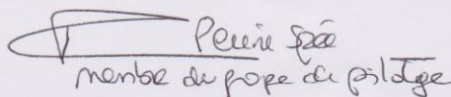 Perrine Spée
membre du groupe de pilotage